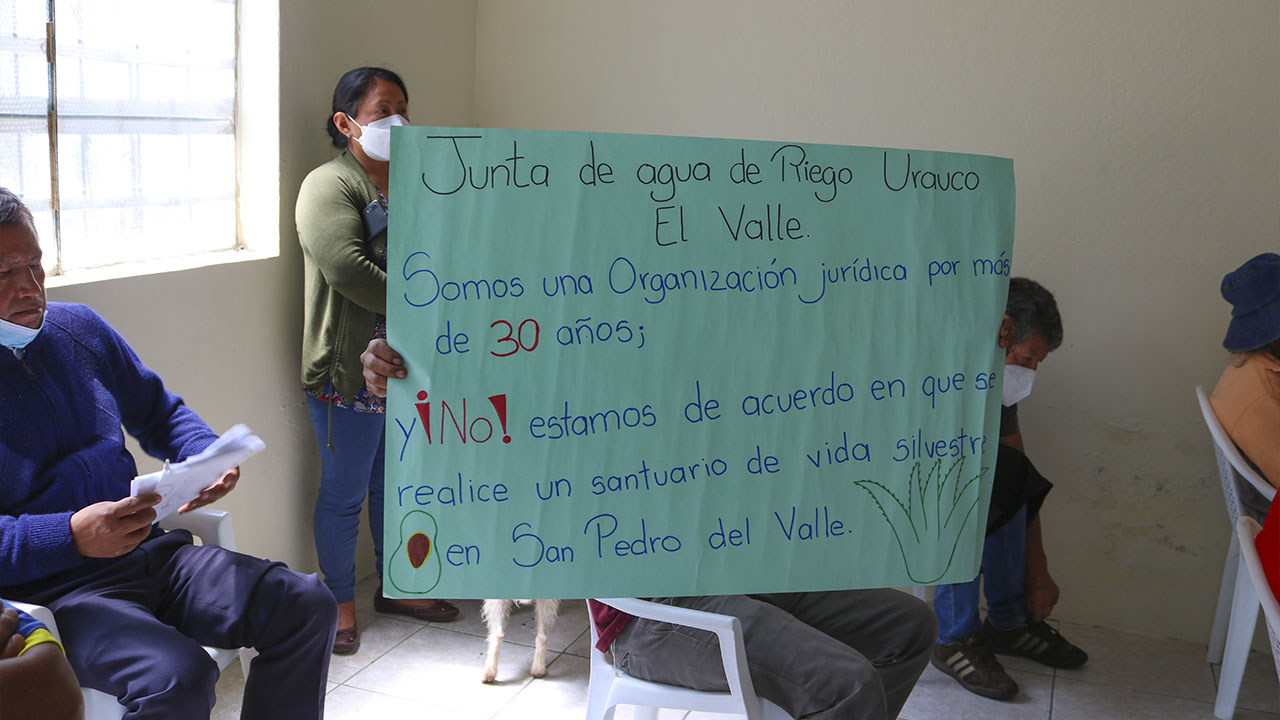 Junta de agua de Riego Urauco
El Valle.
Somos una Organización jurídica por más
de 30 años;
y ¡No! estamos de acuerdo en que se
realice un santuario de vida silvestre
en San Pedro del Valle.